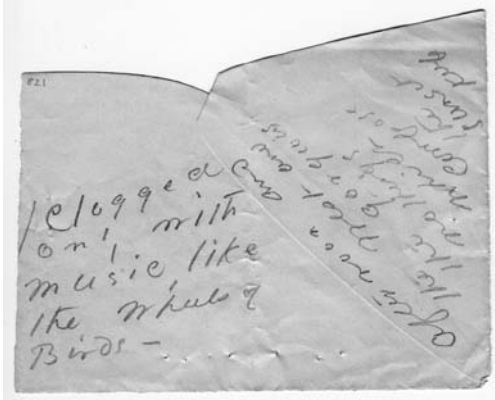 821
Clogged
only with
music, like
the Wheels of
Birds -
afternoon and
the West and
the gorgeous
nothings
which compose
the sunset
keep